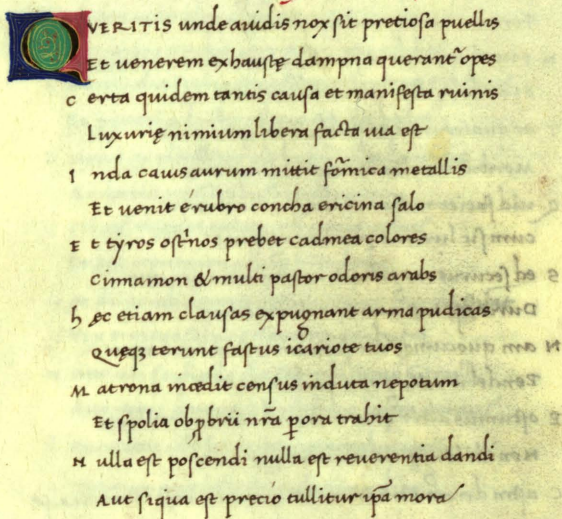 QVERITIS unde auidis nox sit pretiosa puellis
Et uenerem exhaustę dampna querant᷑ opes
Certa quidem tantis causa et manifesta ruinis
Luxurię nimium libera facta uia est
Inda cauis aurum mittit fōmica metallis
Et uenit e rubro concha ericina salo
Et tyros ost̄nos prebet cadmea colores
Cinnamon & multi pastor odoris arabs
hęc etiam clausas expugnant arma pudicas
Quęqꝫ terunt fastus icariote tuos
Matrona incedit census induta nepotum
Et spolia obꝓbrii nr̄a ꝑ ora trahit
Nulla est poscendi nulla est reuerentia dandi
Aut siqua est precio tullitur ip̄a mora